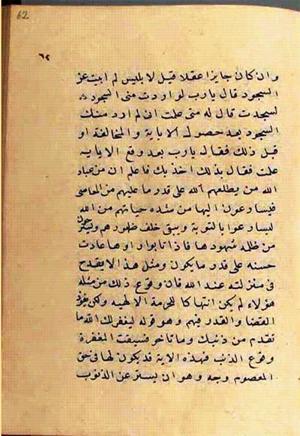 62
٦٢
وان كان جايزا عقلا قيل لابليس لم ابيت عن
السجود قال يارب لو اردت منى السجود
لسجدت قال له متى علمت انى لم ارد منك
السجود بعد حصول الاباية والمخالفة او
قبل ذلك فقال يارب بعد وقع الاباية
علمت فقال بذلك اخذتك فاعلم ان من عباد
الله من يطلعهم الله على قدر ما عليهم من المعاصى
فيسارعون اليها من شده حيائهم من الله
ليسارعوا بالتوبة ويبقى خلف ظهورهم
من ظلمة شهودها فاذا تابوا راوها عادت
حسنه على قدر ما يكون ومثل هذا لا يقدح
فى منزلته عند الله فان وقوع ذلك من مثل
هؤلاء لم يكن انتهاكا للحرمة الالهيه ولكن بنفوذ
القضا والقدر فيهم وهو قوله ليغفر لك الله ما
تقدم من ذنبك وما تاخر فسبقت المغفرة
وقوع الذنب فهذه الاية قد يكون لها فى حق
المعصوم وجه وهو ان يستر عن الذنوب